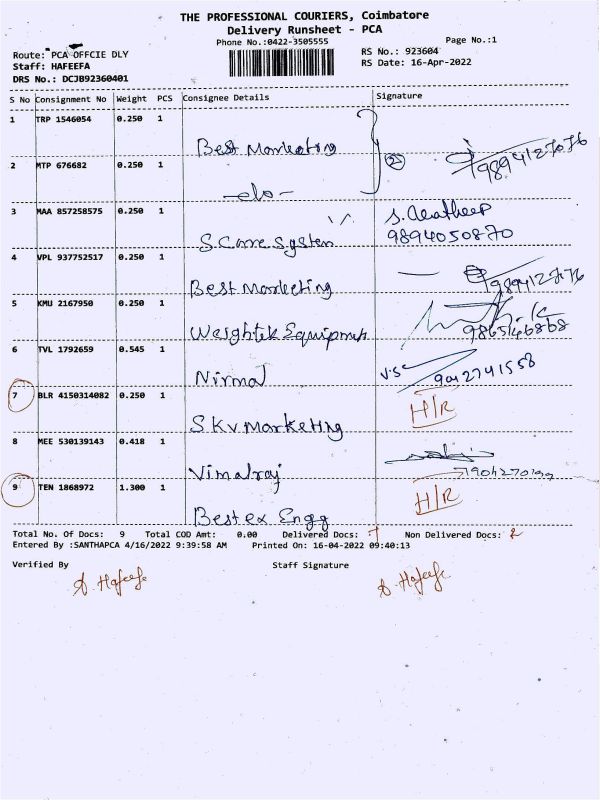 THE PROFESSIONAL COURIERS, Coimbatore
Delivery Runsheet - PCA
Phone No.:0422-3505555
Page No.:1
Route: PCA OFFCIE DLY
RS No.: 923604
Staff: HAFEEFA
RS Date: 16-Apr-2022
DRS No.: DCJB92360401
S No Consignment No Weight PCS Consignee Details Signature
1 TRP 1546054 0.250 1
Best Marketing
2 MTP 676682 0.250 1
②
9894127076
-do-
3 MAA 857258575 0.250 1
S Care System
9894050870
4 VPL 937752517 0.250 1
Best Marketing
5 KMU 2167950 0.250 1
Weightek Equipment
6 TVL 1792659 0.545 1
Nirmal
V.S
9042741558
7 BLR 4150314082 0.250 1
H/R
SKV Marketing
8 MEE 530139143 0.418 1
Vimalraj
9 TEN 1868972 1.300 1
H/R
Bestex Engg
Total No. Of Docs: 9 Total COD Amt: 0.00 Delivered Docs: 7 Non Delivered Docs: 2
Entered By :SANTHAPCA 4/16/2022 9:39:58 AM Printed On: 16-04-2022 09:40:13
Verified By Staff Signature
A. Hafeefa A. Hafeefa